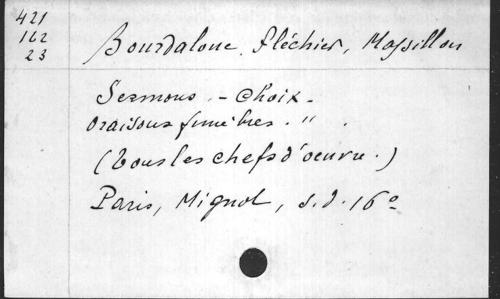 421
162
23
Bourdaloue, Fléchier, Massillon
Sermons - Choix.
Oraisons funèbres. " .
(Tous les chefs d'oeuvre.)
Paris, Mignol, s.d. 16º